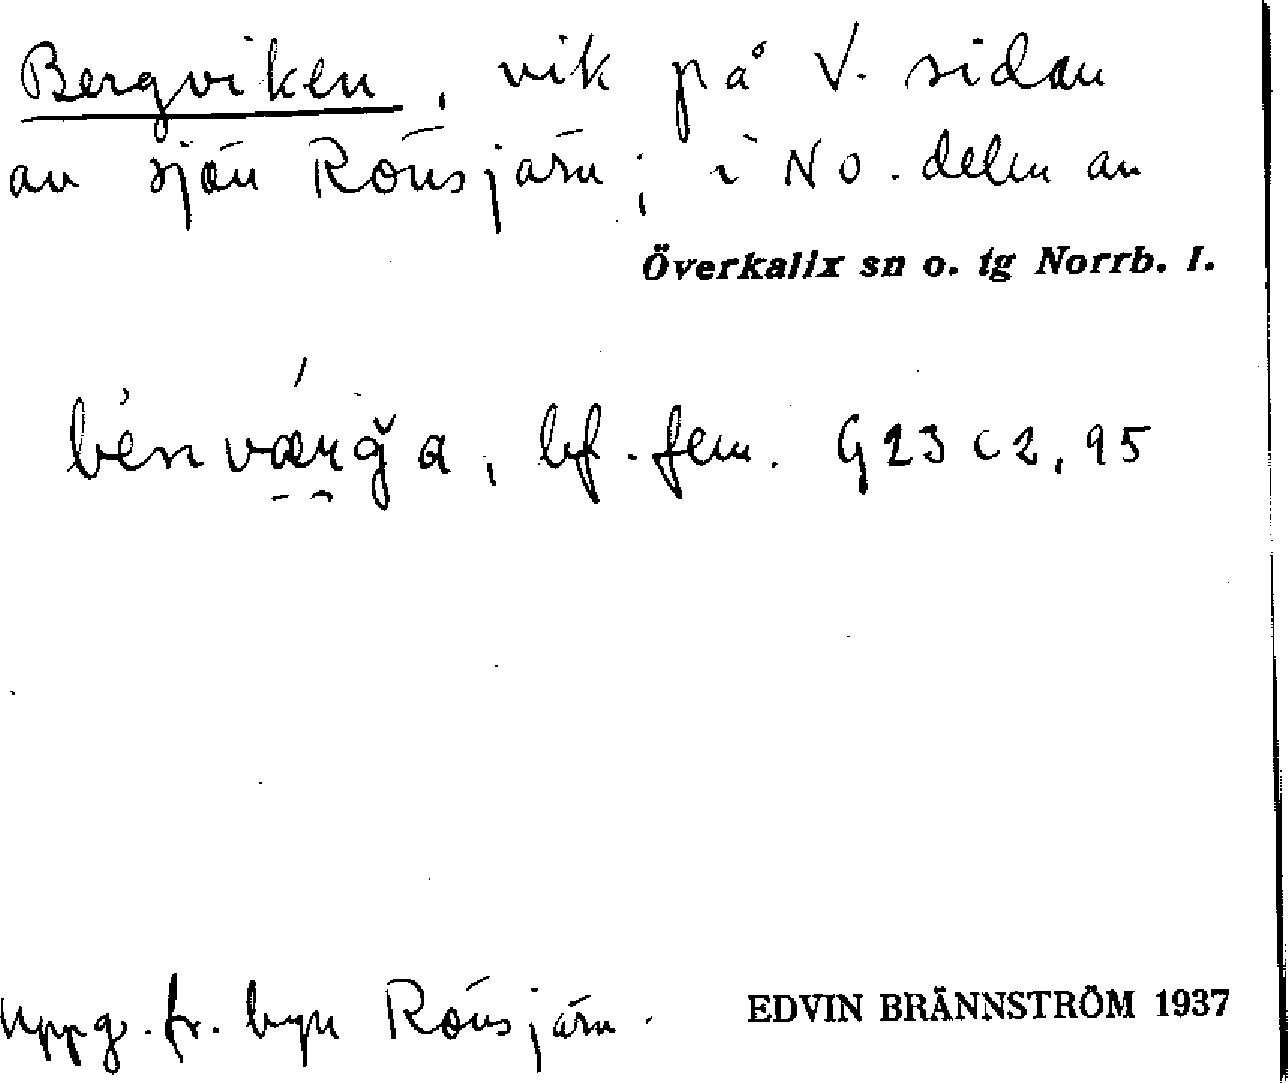 Bergviken, vik på V. sidan
av sjön Rönsjärn; i NO. delen av
Överkalix sn o. tg Norrb. l.
bf. fem. G 23 c 2, 95
Uppg. fr. byn Rönsjärn.
EDVIN BRÄNNSTRÖM 1937